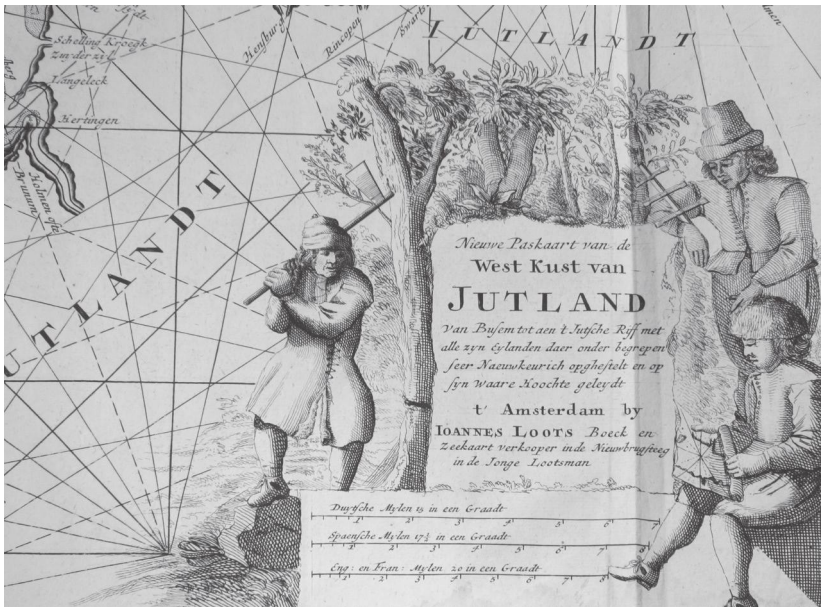 Schelling Kroegk
Zuyder zyl
Langeleck
Hertingen
Holmen ofte
Brunum
Hensburg
Rincopen
Swarts
IUTLANDT
UTLANDT
Nieuwe Paskaart van de
West Kust van
JUTLAND
van Busem tot aen t Jutsche Riff met
alle zyn Eylanden daer onder begrepen
seer Naeuwkeurich opghestelt en op
syn waare Hoochte geleydt
t' Amsterdam by
IOANNES LOOTS Boeck en
Zeekaart verkooper in de Nieuwbrugsteeg
in de Jonge Lootsman
Duytsche Mylen 15 in een Graadt
1 2 3 4 5 6 7
Spaensche Mylen 17½ in een Graadt
1 2 3 4 5 6 7 8
Eng: en Fran: Mylen 20 in een Graadt
1 2 3 4 5 6 7 8